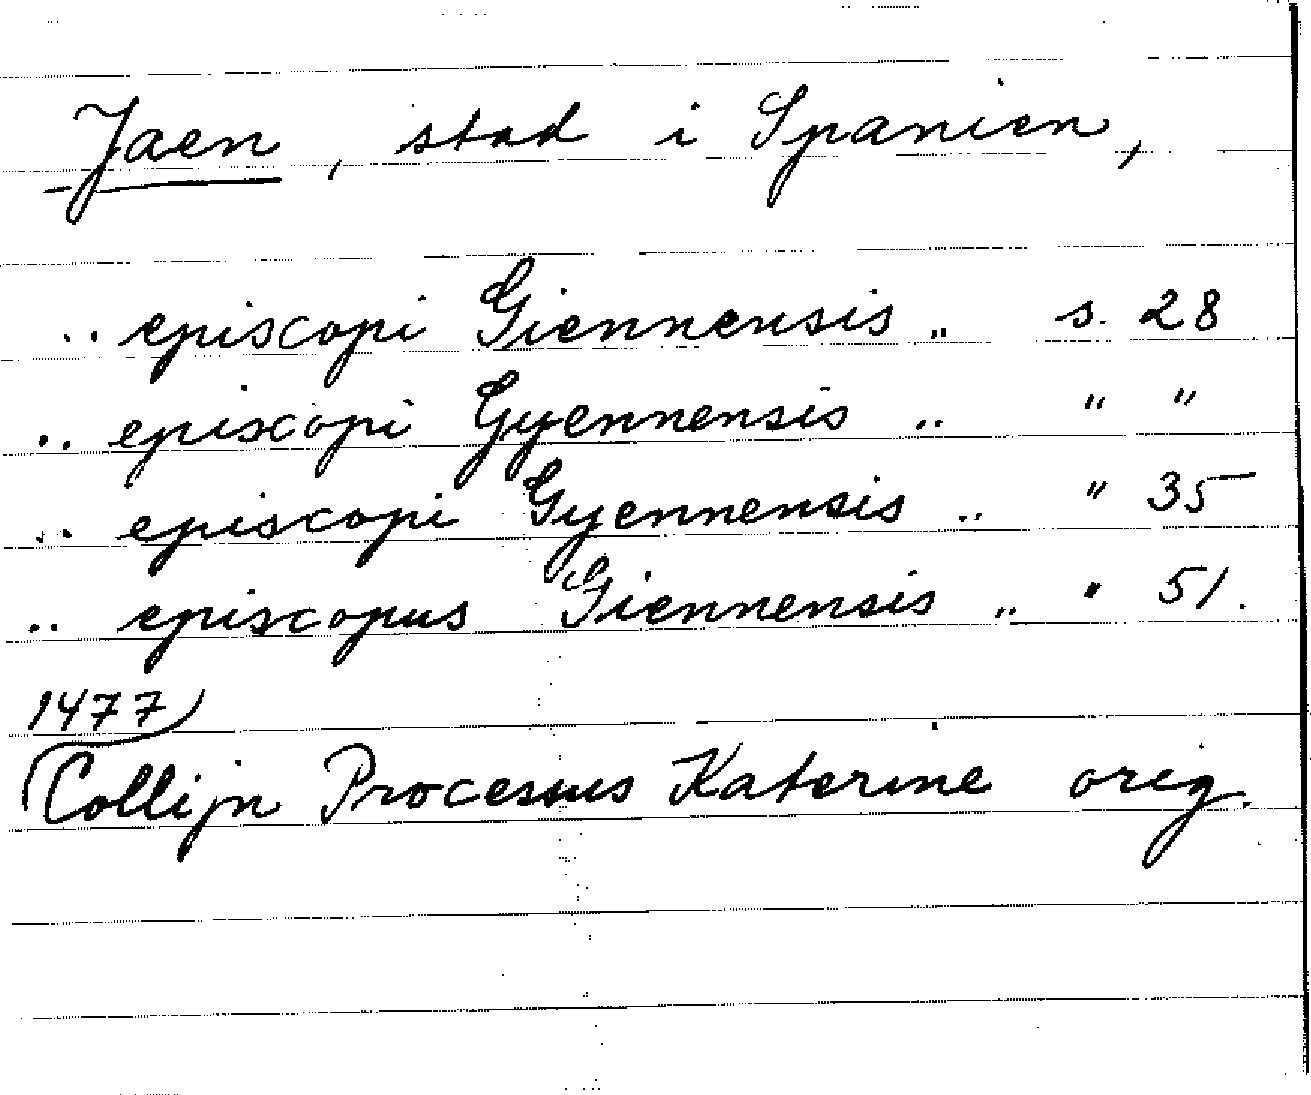 Jaen, stad i Spanien,
.. episcopi Giennensis .. s. 28
.. episcopi Gyennensis .. " "
.. episcopi Gyennensis .. " 35
.. episcopus Giennensis .. " 51.
1477
Collijn Processus Katerine orig.